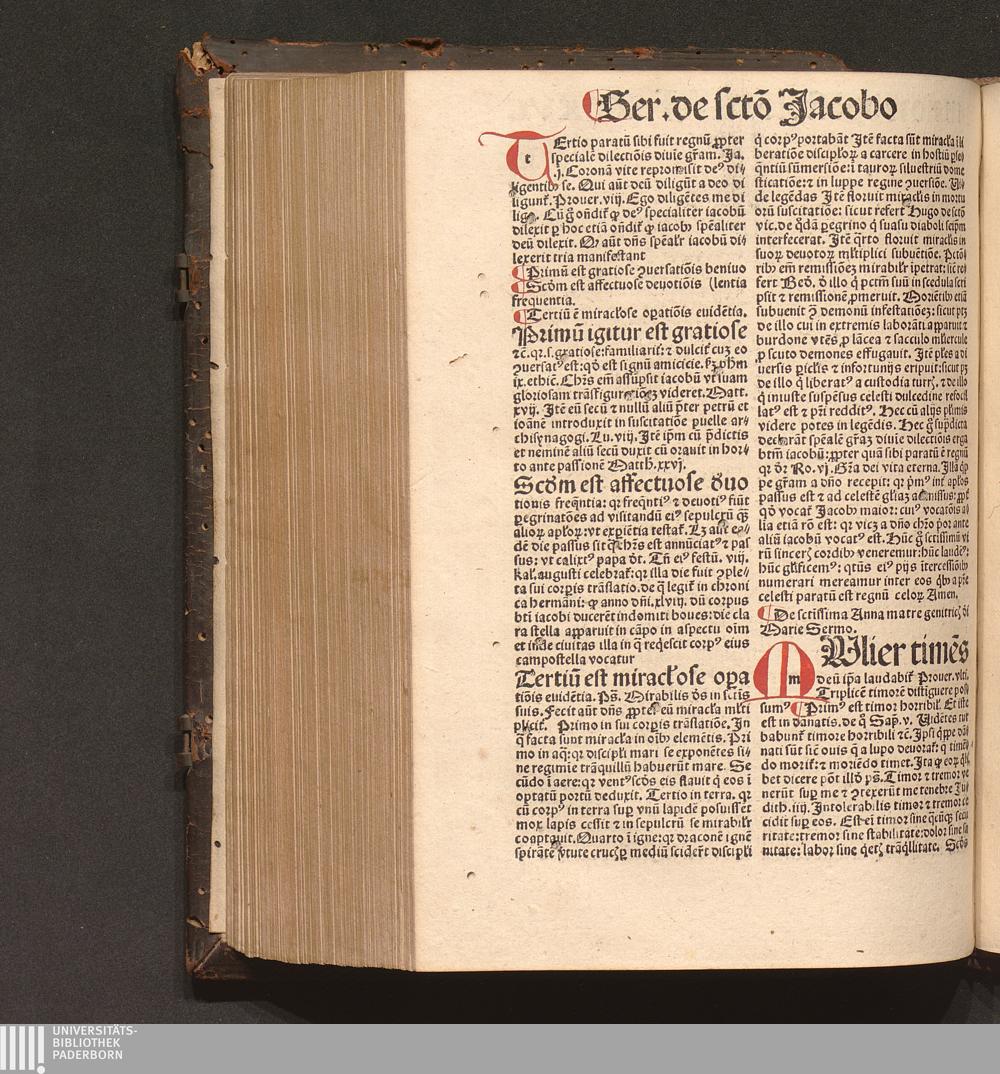 Ser. de sctō Jacobo
Ertio paratū sibi fuit regnū ꝓpter
speciale dilectiōis diuīe gr̄am. Ja.
j. Coronā vite repromisit deꝰ di⸗
ligentibꝰ se. Qui aūt deū diligūt a deo di
ligunt᷑. Prouer. viij. Ego diligētes me di
ligo. Cū g̊ on̄dit᷑ ꝙ deꝰ specialiter iacobū
dilexit ꝑ hoc etiā on̄dit᷑ ꝙ iacobꝰ spēaliter
deū dilexit. Q aūt dn̄s spēalr̄ iacobū di⸗
lexerit tria manifestant
Primū est gratiose ꝯuersatiōis beniuo
Scd̄m est affectuose deuotiōis (lentia
frequentia.
Tertiū ē miracl̓ose oꝑatiōis euidētia.
Primū igitur est gratiose
ꝛc̄. qr. s. gratiose: familiarit᷑: ꝛ dulcit᷑ cuꝫ eo
ꝯuersatꝰ est: qd̓ est signū amicicie. ẜꝫ ph̄m
ix. ethic̄. Chr̄s em̄ assūpsit iacobū vt suam
gloriosam trāsfigurationeꝫ videret. Matt.
xvij. Itē eū secū ꝛ nullū aliū p̄ter petrū et
ioānē introduxit in suscitatiōe puelle ar⸗
chisynagogi. Lu. viij. Itē ip̄m cū p̄dictis
et neminē aliū secū duxit cū orauit in hor⸗
to ante passionē Matth. xxvj.
Scd̄m est affectuose duo
tionis freq̄ntia: qr freq̄ntiꝰ ꝛ deuotiꝰ fiūt
ꝑegrinatōes ad visitandū eiꝰ sepulcrū qͣꝫ
alioꝝ apl̓oꝝ: vt exꝑiētia testat᷑. Lꝫ aūt eo⸗
dē die passus sit q̄ chr̄s est annūciatꝰ ꝛ pas
sus: vt calixtꝰ papa dt̄. Tn̄ eiꝰ festū. viij.
kal̓. augusti celebrat᷑: qr illa die fuit ꝯple⸗
ta sui corꝑis trāslatio. de q̄ legit᷑ in chroni
ca hermāni: ꝙ anno dn̄i. xlviij. dū corpus
bt̄i iacobi ducerēt indomiti boues: die cla
ra stella apparuit in cāpo in aspectu oīm
et inde ciuitas illa in q̄ reqͥescit corpꝰ eius
campostella vocatur
Tertiū est miracl̓ose oꝑa
tiōis euidētia. Ps̄. Mirabilis dꝰs in sctīs
suis. Fecit aūt dn̄s ꝓpter eū miracl̓a ml̓ti
plicit᷑. Primo in sui corꝑis trāslatiōe. In
q̄ facta sunt miracl̓a in oībꝰ elemētis. Pri
mo in aq̄: qr discipl̓i mari se exponētes si⸗
ne regimīe trāquillū habuerūt mare. Se
cūdo ī aere: qr ventꝰ scd̓s eis flauit q̄ eos ī
optatū portū deduxit. Tertio in terra. qr
cū corpꝰ in terra suꝑ vnū lapidē posuisset
mox lapis cessit ꝛ in sepulcrū se mirabilr̄
coaptauit. Quarto ī igne: qr draconē ignē
spirātē v̓tute crucꝭ ꝑ mediū scider̄t discipl̓i
q̄ corpꝰ portabāt Itē facta sūt miracl̓a ī li
beratiōe discipl̓oꝝ a carcere in hostiū ꝑseq
qͣntiū sūmersiōe: ī tauroꝝ siluestriū dome
sticatiōe: ꝛ in luppe regine ꝯuersiōe. Vi⸗
de legēdas Itē floruit miracl̓is in mortu
orū suscitatiōe: sicut refert Hugo de sctō
vic. de qͦdā ꝑegrino q̄ suasu diaboli seip̄m
interfecerat. Itē qͣrto floruit miracl̓is in
suoꝝ deuotoꝝ ml̓tiplici subuētiōe. Pctō⸗
ribꝰ em̄ remissiōeꝫ mirabilr̄ īpetrat: sic̄ re
fert Bed̓. d̓ illo q̄ pctm̄ suū in scedula scri
psit ꝛ remissionē ꝓmeruit. Moriētibꝰ etiā
subuenit ꝯ̄ demonū infestatiōeꝫ: sicut ptꝫ
de illo cui in extremis laborāti apparuit ꝛ
burdone vtēs ꝓ lācea ꝛ sacculo mliercule
ꝓ scuto demones effugauit. Itē ples a di
uersis ꝑicl̓is ꝛ infortunijs eripuit: sicut pꝫ
de illo q̄ liberatꝰ a custodia turrꝭ. ꝛ de illo
q̄ iniuste suspēsus celesti dulcedine refocil
latꝰ est ꝛ pr̄i redditꝰ. Hec cū alijs pl̓imis
videre potes in legēdis. Hec g̊ sup̓dicta
declarāt spēalē gr̄aꝫ diuīe dilectiōis erga
btm̄ iacobū: ꝓpter quā sibi paratū ē regnū
qr dr̄ Ro. vj. Gr̄a dei vita eterna. Illā q̄ꝑ
pe gr̄am a dn̄o recepit: qr pͥmꝰ int᷑ apl̓os
passus est ꝛ ad celestē gl̓iaꝫ admissus: ꝓpt̄
qd̓ vocat᷑ Jacobꝰ maior: cuiꝰ vocatōis a⸗
lia etiā rō est: qr vicꝫ a dn̄o chr̄o pͥor ante
aliū iacobū vocatꝰ est. Hūc g̊ sctissimū vi
rū sincerꝭ cordibꝰ veneremur: hūc laudemꝰ:
hūc gl̓ificemꝰ: qtūs eiꝰ pijs ītercessiōibꝰ
numerari mereamur inter eos qͥbꝰ a pr̄e
celesti paratū est regnū celoꝝ Amen.
De sctissima Anna matre genitricꝭ di
Marie Sermo.
MUlier timēs
deū ip̄a laudabit᷑ Prouer. vlti.
Triplicē timorē distīguere pos⸗
sumꝰ Primꝰ est timor horribil̓. Et iste
est in dānatis. de q̊ Sap̄. v. Vidētes tur
babunt᷑ timore horribili ꝛc̄. Ipsi qͥppe dā⸗
nati sūt sic̄ ouis q̄ a lupo deuorat᷑: q̄ timēn⸗
do morit᷑: ꝛ moriēdo timet. Ita ꝙ eoꝝ qͥli⸗
bet dicere pōt illd̓ ps̄. Timor ꝛ tremor ve
nerūt suꝑ me ꝛ ꝯtexerūt me tenebre Ju⸗
dith. iiij. Intolerabilis timor ꝛ tremor ce
cidit suꝑ eos. Est ei timor sine qͣcūqꝫ secu
ritate: tremor sine stabilitate: dolor sine sa
nitate: labor sine qͥetꝭ trāqͥllitate. Scd̓s
UNIVERSITÄTS-
BIBLIOTHEK
PADERBORN